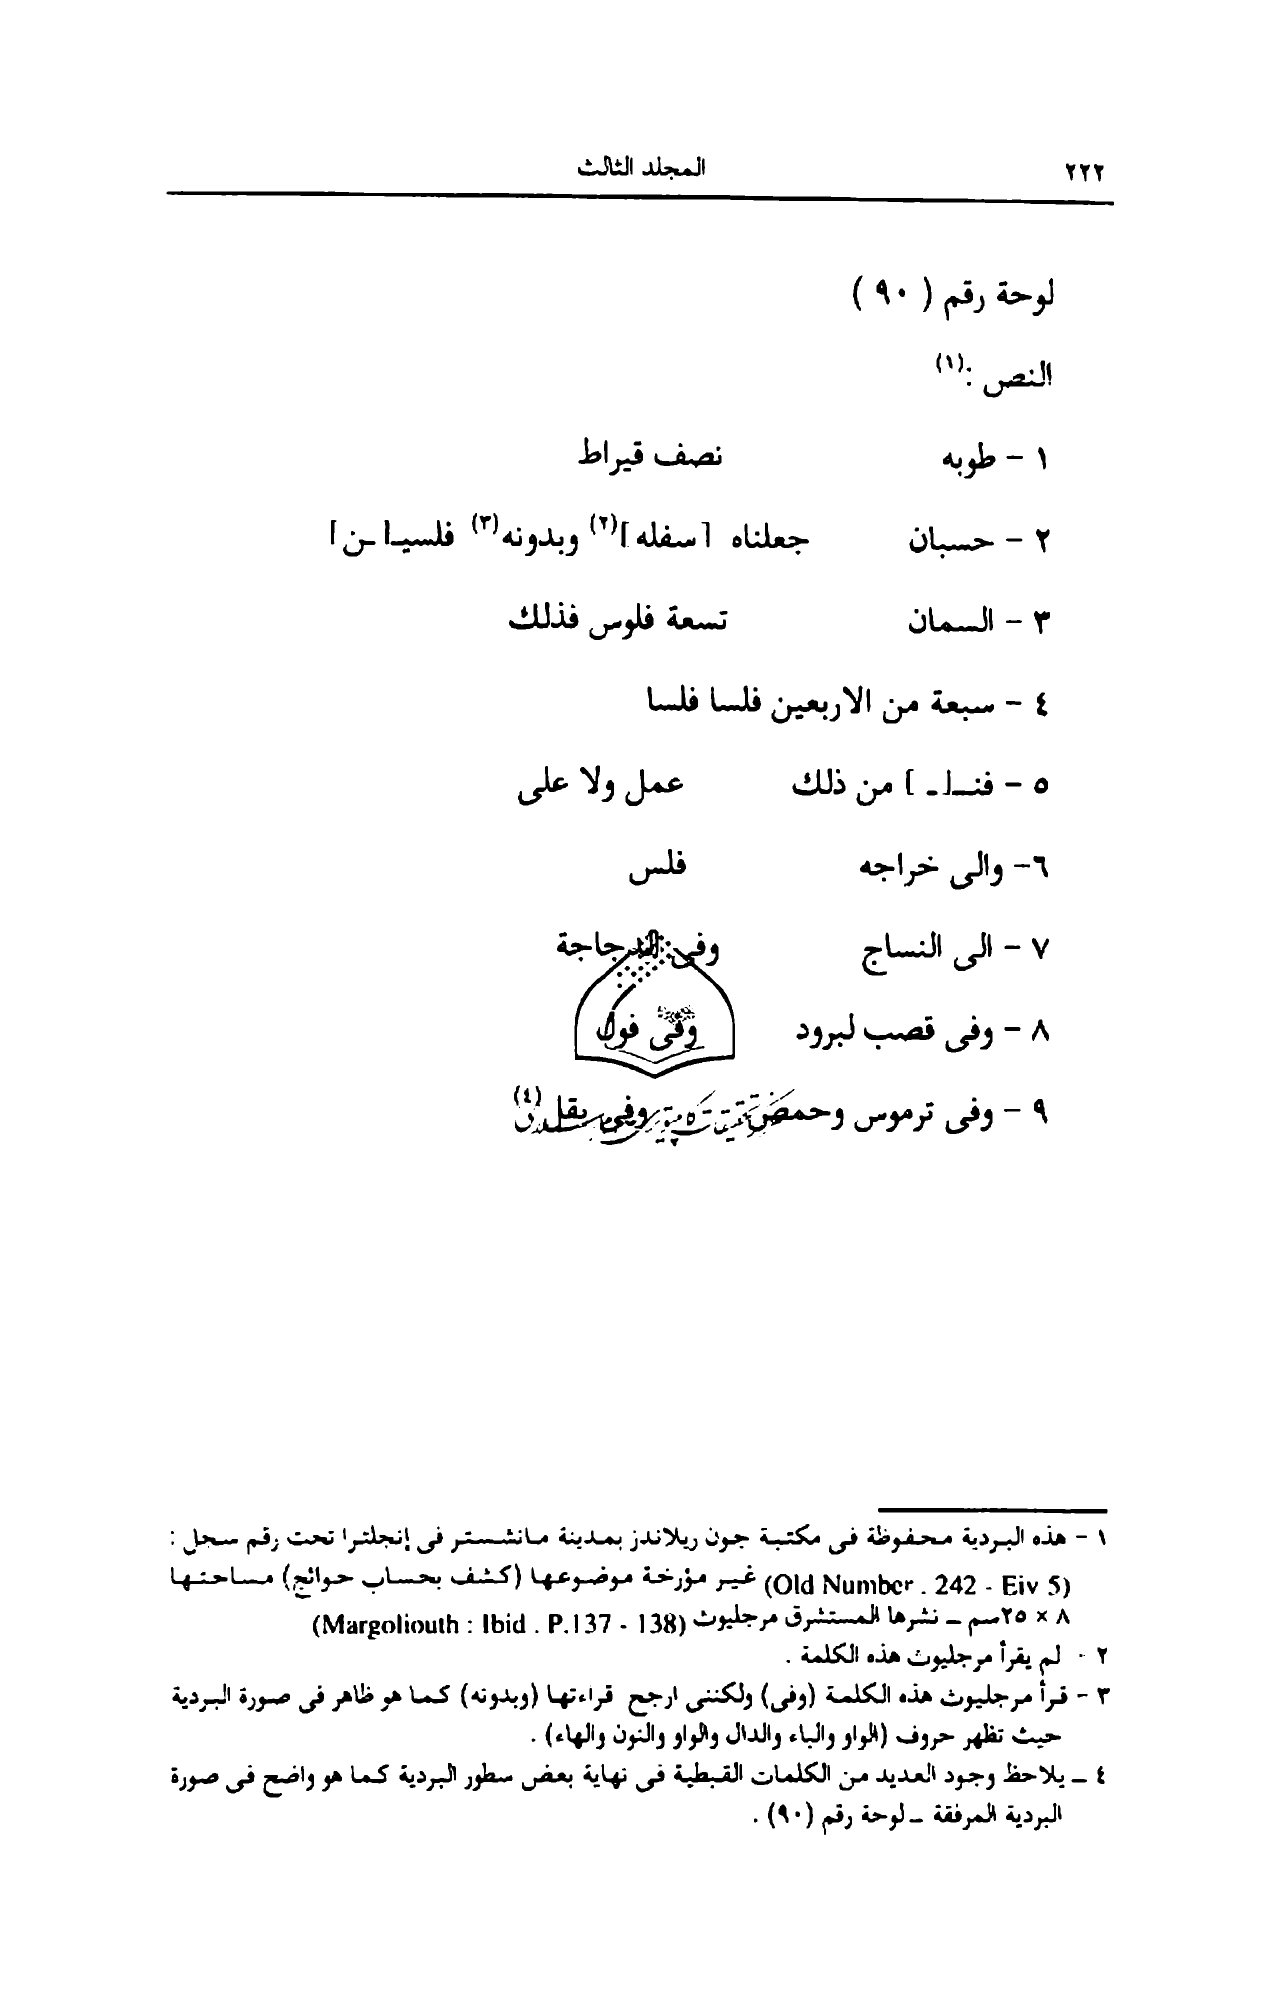 ٢٢٢ المجلد الثالث
لوحة رقم ( ٩٠ )
النص :(١)
١ - طوبه نصف قيراط
٢ - حسبان جعلناه [سفله](٢) وبدونه(٣) فلسيـ[ـن]
٣ - السمان تسعة فلوس فذلك
٤ - سبعة من الاربعين فلسا فلسا
٥ - فنـ[ـ ] من ذلك عمل ولا على
٦- والى خراجه فلس
٧ - الى النساج وفى
٨ - وفى قصب لبرود وفى فول
٩ - وفى ترموس وحمص وفى بقل(٤)
١ - هذه البردية محفوظة فى مكتبة جون ريلاندز بمدينة مانشستر فى إنجلترا تحت رقم سجل :
(Old Number . 242 - Eiv 5) غير مؤرخة موضوعها (كشف بحساب حوائج) مساحتها
٨ × ٢٥سم ـ نشرها المستشرق مرجليوث (Margoliouth : Ibid . P.137 - 138)
٢ - لم يقرأ مرجليوث هذه الكلمة .
٣ - قرأ مرجليوث هذه الكلمة (وفى) ولكننى ارجح قراءتها (وبدونه) كما هو ظاهر فى صورة البردية
حيث تظهر حروف (الواو والباء والدال والواو والنون والهاء) .
٤ ـ يلاحظ وجود العديد من الكلمات القبطية فى نهاية بعض سطور البردية كما هو واضح فى صورة
البردية المرفقة ـ لوحة رقم (٩٠) .